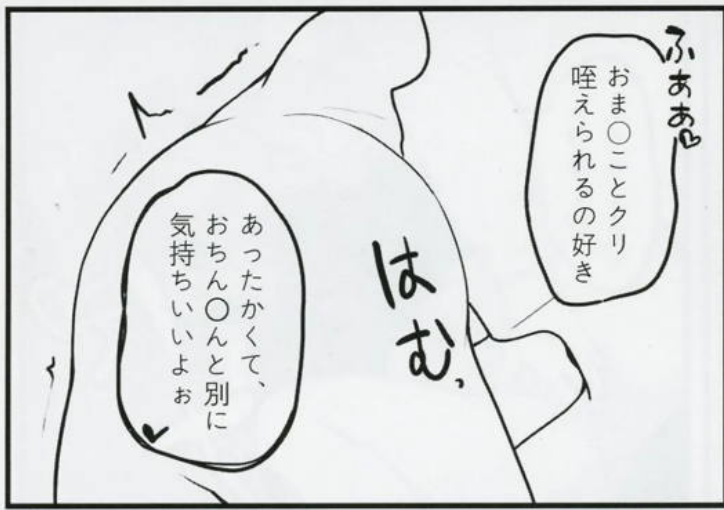 ふぁあ♡
おま○ことクリ
咥えられるの好き
はむっ
あったかくて、
おちん○んと別に
気持ちいいよぉ